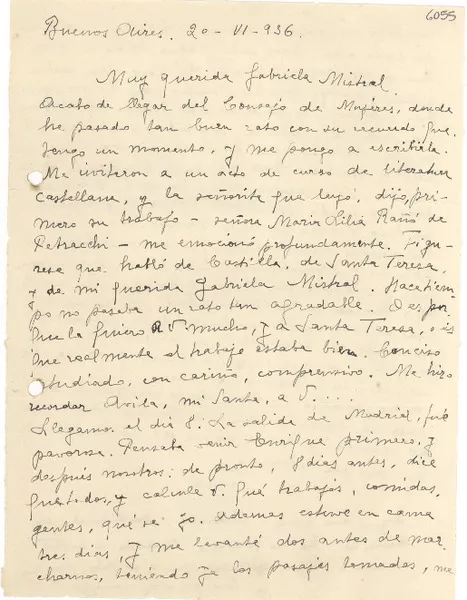 6055
Buenos Aires. 20-VI-936.
Muy querida Gabriela Mistral.
Acabo de llegar del Consejo de Mujeres, donde
he pasado tan buen rato con su recuerdo que,
tengo un momento, y me pongo a escribirla.
Me invitaron a un acto de curso de literatura
castellana, y la señorita que leyó, dijo, pri-
mero su trabajo - señora Maria Lilia Rañó de
Petracchi - me emocionó profundamente. Figu-
rese que habló de Castilla, de Santa Teresa,
y de mi querida Gabriela Mistral. Hace tiem-
po no pasaba un rato tan agradable. Es por
que la quiero a V. mucho, y a Santa Teresa, o es
que realmente el trabajo estaba bien. Conciso
estudiado, con cariño, comprensivo. Me hizo
recordar Avila, mi Santa, a V. ....
Llegamos el dia 8. La salida de Madrid, fué
pavorosa. Pensaba venir Enrique primero, y
después nosotros: de pronto, 8 dias antes, dice
que todos, y calcule V. qué trabajos, comidas,
gentes, qué sé yo. Ademas estuve en cama
tres dias, y me levanté dos antes de mar-
charnos, teniendo ya los pasajes tomados, me